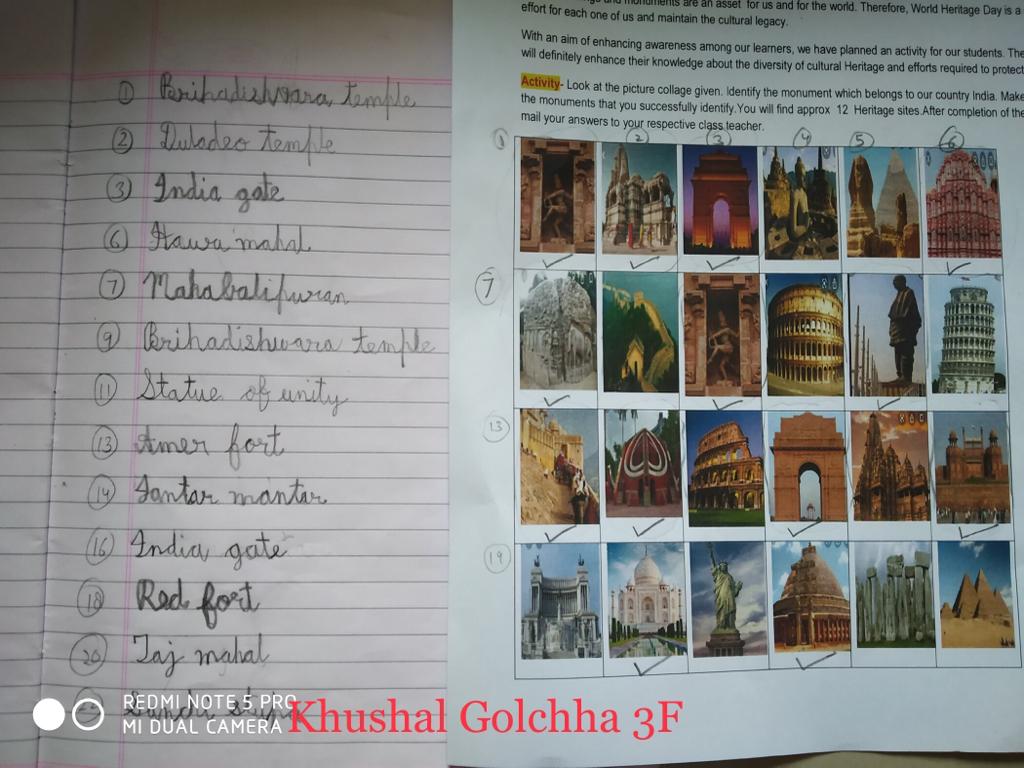 ① Brihadishwara temple
② Duladeo temple
③ India gate
⑥ Hawa mahal
⑦ Mahabalipuran
⑨ Brihadishwara temple
⑪ Statue of unity
⑬ Amer fort
⑭ Jantar mantar
⑯ India gate
⑱ Red fort
⑳ Taj mahal
REDMI NOTE 5 PRO
MI DUAL CAMERA
Khushal Golchha 3F
monuments are an asset for us and for the world. Therefore, World Heritage Day is a
effort for each one of us and maintain the cultural legacy.
With an aim of enhancing awareness among our learners, we have planned an activity for our students. The
will definitely enhance their knowledge about the diversity of cultural Heritage and efforts required to protect
Activity- Look at the picture collage given. Identify the monument which belongs to our country India. Make
the monuments that you successfully identify.You will find approx 12 Heritage sites.After completion of the
mail your answers to your respective class teacher.
① ② ③ ④ ⑤ ⑥
⑦
⑬
⑲